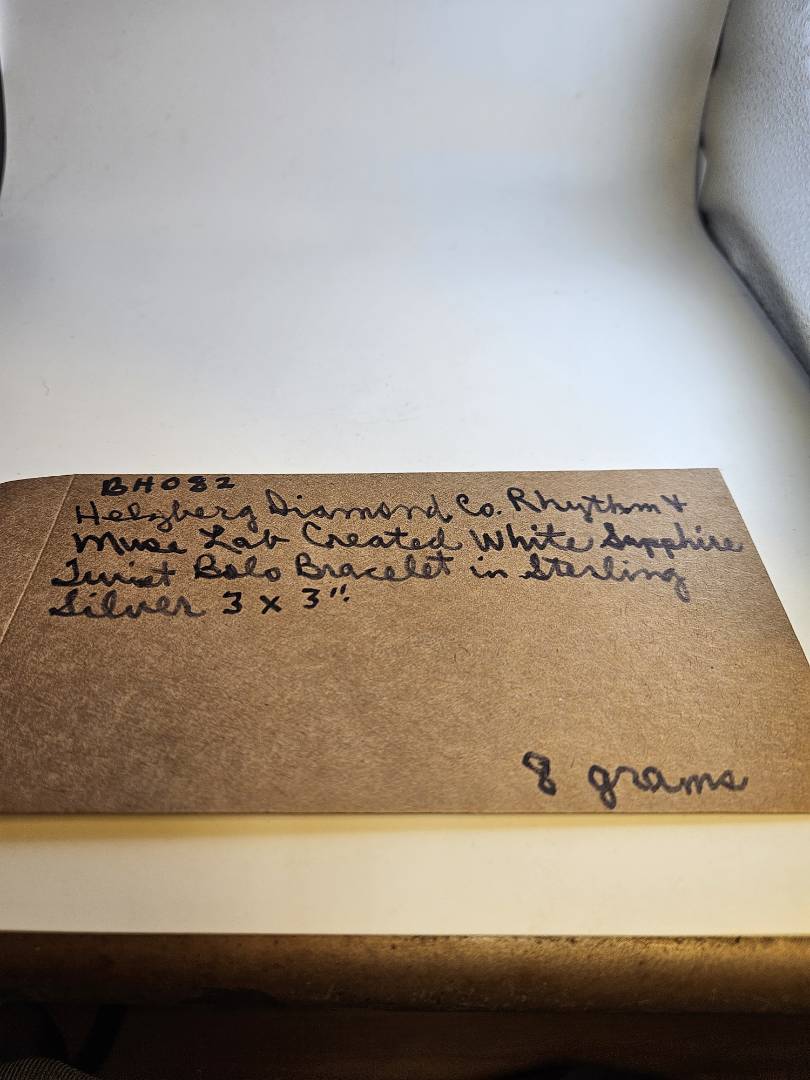 BH082
Helzberg Diamond Co. Rhythm +
Muse Lab Created White Sapphire
Twist Bolo Bracelet in Sterling
Silver 3 x 3"
8 grams